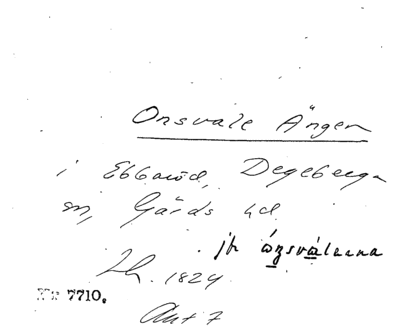 Onsvale Ängen
i Ebbaröd, Degeberga
sn, Gärds hd.
jfr
Lh. 1824
Nr 7710.
Akt 7